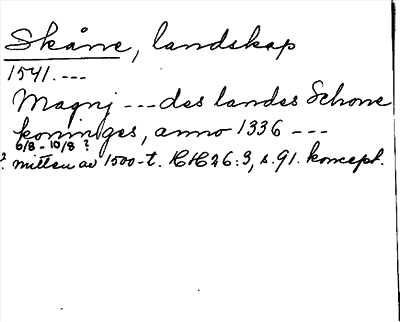 Skåne, landskap
1541. ---
Magnj --- des landes Schone
koninges, anno 1336 ---
6/8 - 10/8 ?
? mitten av 1500-t. HH 26:3, s. 91. koncept.